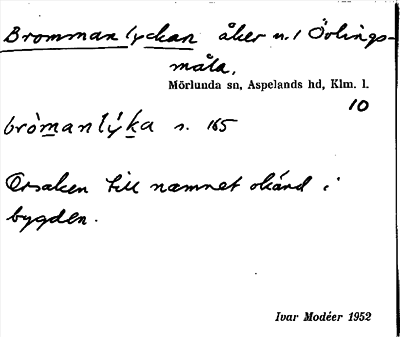 Brommanlyckan åker n. 1 Övlings-
måla.
Mörlunda sn, Aspelands hd, Klm. l.
10
bròmanlýka s. 165
Orsaken till namnet okänd i
bygden.
Ivar Modéer 1952